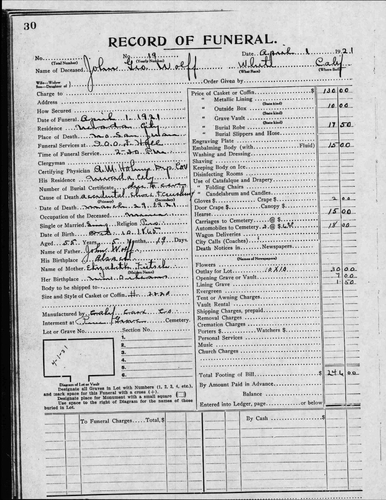 30
RECORD OF FUNERAL.
No. No. 19 Date April 1 1921
(Total Number) (Yearly Number)
Name of Deceased John Geo Wolff White Caly
(What Race) (Where Born)
Wife—Widow
Son—Daughter of Order Given by
Charge to
Address
How Secured
Date of Funeral April 1, 1921
Residence Nevada City
Place of Death San Juan
Funeral Services at I.O.O.F Hall
Time of Funeral Service 2:30 Pm
Clergyman
Certifying Physician
His Residence Nevada City
Number of Burial Certificate
Cause of Death accidental
Date of Death March 29, 1921
Occupation of the Deceased miner
Single or Married Religion
Date of Birth Oct. 10. 1865
Aged 55 Years 5 Months 19 Days
Name of Father John Wolff
His Birthplace Alsace
Name of Mother Elizabeth
(Maiden Name)
Her Birthplace
Body to be shipped to
Size and Style of Casket or Coffin
Manufactured by Co
Interment at Pine Grove Cemetery.
Lot or Grave No. Section No.
1.
2.
3.
4.
5.
6.
Diagram of Lot or Vault
Designate all Graves in Lot with Numbers (1, 2, 3, 4, etc.),
and mark space for this Funeral with a cross (+).
Designate place for Monument with a small square
Use space to the right of Diagram for the names of those
buried in Lot.
Price of Casket or Coffin 130 00
" Metallic Lining
(State kind)
" Outside Box 10 00
(State kind)
" Grave Vault
(State kind)
" Burial Robe 17 50
(State kind)
" Burial Slippers and Hose
Engraving Plate
Embalming Body (with Fluid) 15 00
Washing and Dressing
Shaving
Keeping Body on Ice
Disinfecting Rooms
Use of Catafalque and Drapery
" Folding Chairs
" Candelabrum and Candles
Gloves 2 00
Door Crape Candy
Hearse 15 00
Carriages to Cemetery @ $
Automobiles to Cemetery 2 @ $ 18 00
Wagon Deliveries
City Calls (Coaches)
Death Notices in Newspapers
(Names of Newspapers)
Flowers
Outlay for Lot 10x10 30 00
Opening Grave or Vault 7 00
Lining Grave 1 50
Evergreen
Tent or Awning Charges
Vault Rental
Shipping Charges, prepaid
Removal Charges
Cremation Charges
Porters $ Watchers $
Personal Services
Music
Church Charges
Total Footing of Bill $ 246 00
By Amount Paid in Advance
Balance
Entered into Ledger, page or below.
To Funeral Charges By Cash $